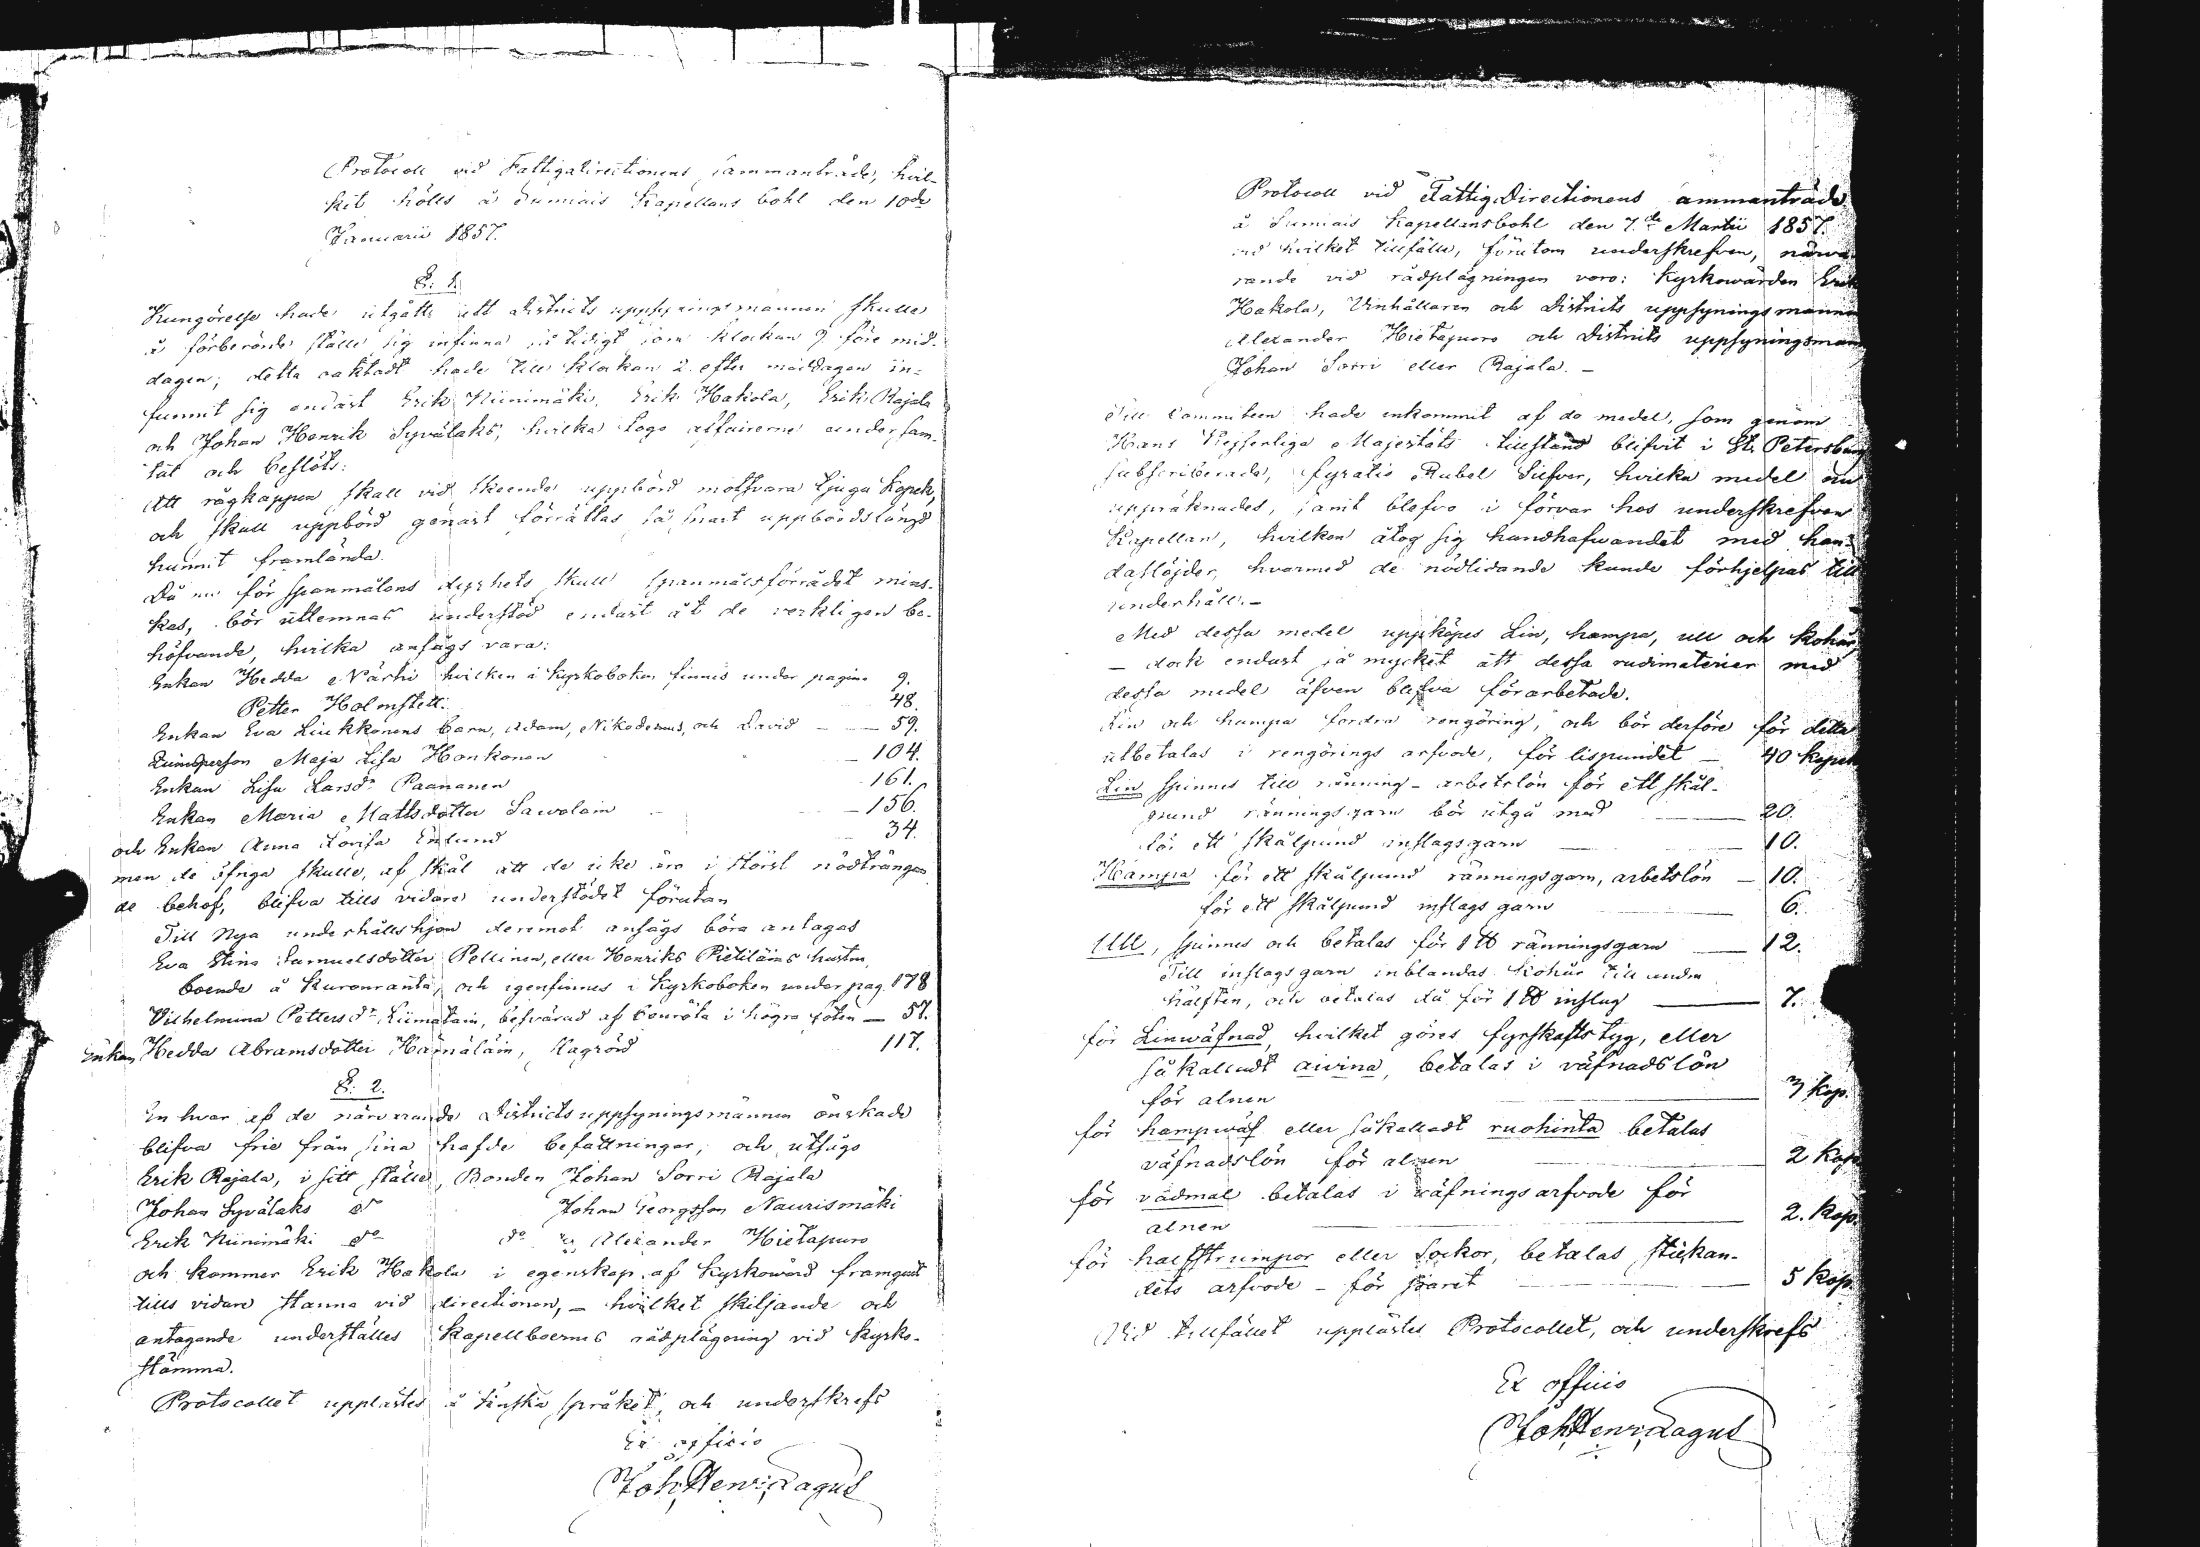 Protocoll vid Fattigdirectionens sammanträde, hvil-
ket hölls å Sumiais Kapellans bohl den 10de
Januarii 1857.
§. 1.
Kungörelse hade utgått att Districts uppsyningsmännen skulle
å förberörde ställe sig infinna så tidigt som klockan 9 före mid-
dagen; detta oaktadt hade till klockan 2 efter middagen in-
funnit sig endast Erik Niinimäki, Erik Hakola, Erik Rajala
och Johan Henrik Syvälaks, hvilka togo affairerne under sam-
tal och beslöts:
Att rågkappen skall vid skeende uppbörd motsvara tjugu Kopek,
och skall uppbörd genast förrättas så snart uppbördslängd
hunnit framlända.
Då nu för spanmålens dyrhets skull spanmålsförrådet mins-
kas, bör utlemnas understöd endast åt de verkligen be-
höfvande, hvilka ansågs vara:
Enkan Hedda Närhi hvilken i Kyrkoboken finnes under pagina 9.
Petter Holmstett 48.
Enkan Eva Liukkonens barn, Adam, Nikodemus, och David — 59.
Qvinsperson Maja Lisa Honkonen — 104.
Enkan Lisa Larsdr Paananen 161.
Enkan Maria Mattsdotter Sawolain — 156.
och Enkan Anna Lovisa Enlund 34.
men de öfriga skulle, af skäl att de icke äro i störst nödträngan-
de behof, blifva tills vidare understödet förutan
Till Nya underhållshjon deremot ansågs böra antagas
Eva Stina Samuelsdotter Pellinen, eller Henriks Pietiläins hustru,
boende å Kuronranta, och igenfinnes i Kyrkoboken under pag. 178
Vilhelmina Pettersdr Liimatain, besvärad af benröta i högra foten — 57.
Enkan Hedda Abramsdotter Hämäläin, 117.
§. 2.
En hvar af de närvarande Districtsuppsyningsmännen önskade
blifva frie från sina hafde befattningar, och utsågs
Erik Rajala, i sitt ställe, Bonden Johan Sorri Rajala
Johan Syvälaks do Johan Georgsson Naurismäki
Erik Niinimäki do do Alexander Hietapuro
och kommer Erik Hakola i egenskap af Kyrkowärd framgent
tills vidare stanna vid directionen, — hvilket skiljande och
antagande underställes Kapellboernes rådplägning vid Kyrko-
stämma.
Protocollet upplästes å finska språket, och underskrefs
Ex officio
Joh. Henr. Lagus
Protocoll vid Fattig Directionens ammanträde
å Sumiais Kapellansbohl den 7de Martii 1857.
vid hvilket tillfälle, förutom underskrefven, närva-
rande vid rådplägningen voro: Kyrkowärden Erik
Hakola, Vinhållaren och Districts uppsyningsmannen
Alexander Hietapuro och Districts uppsyningsman
Johan Sorri eller Rajala. —
Till Commiteen hade inkommit af de medel, som genom
Hans Kejserliga Majestäts tillstånd blifvit i St. Petersburg
subscriberade, fyratio Rubel Silfver, hvilka medel nu
uppräknades, samt blefvo i förvar hos underskrefven
Kapellan, hvilken åtog sig handhafwandet med han-
daslöjder, hvarmed de nödlidande kunde förhjelpas till
underhåll. —
Med dessa medel uppköpes Lin, hampa, ull och kohår,
— dock endast så mycket att dessa rudimaterier med
dessa medel äfven blifva förarbetade.
Lin och hampa fordra rengöring, och bör derföre för detta
utbetalas i rengörings arfvode, för lispundet — 40 kopek
Lin spinnes till ränning - arbetslön för ett skål-
pund ränningsgarn bör utgå med — 20.
för ett skålpund inslagsgarn — 10.
Hampa för ett skålpund ränningsgarn, arbetslön — 10.
för ett skålpund inslags garn — 6.
Ull, spinnes och betalas för 1 ℔ ränningsgarn — 12.
Till inslagsgarn inblandas kohår till andra
hälften, och betalas då för 1 ℔ inslag — 7.
för Linwäfnad, hvilket göres fyrskafts tyg, eller
såkalladt aivina, betalas i väfnadslön
för alnen — 3 kop.
för hampwäf eller såkalladt ruohinta betalas
väfnadslön för alnen — 2 kop.
för vadmal betalas i väfningsarfvode för
alnen — 2. kop.
för halfstrumpor eller Sockor, betalas stickan-
dets arfvode - för paret — 5 kop.
Vid tillfället upplästes Protocollet, och underskrefs
Ex officio
Joh. Henr. Lagus